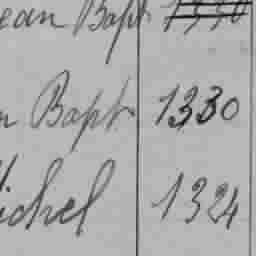 ean Bapt
n Bapt 1330
ichel 1324